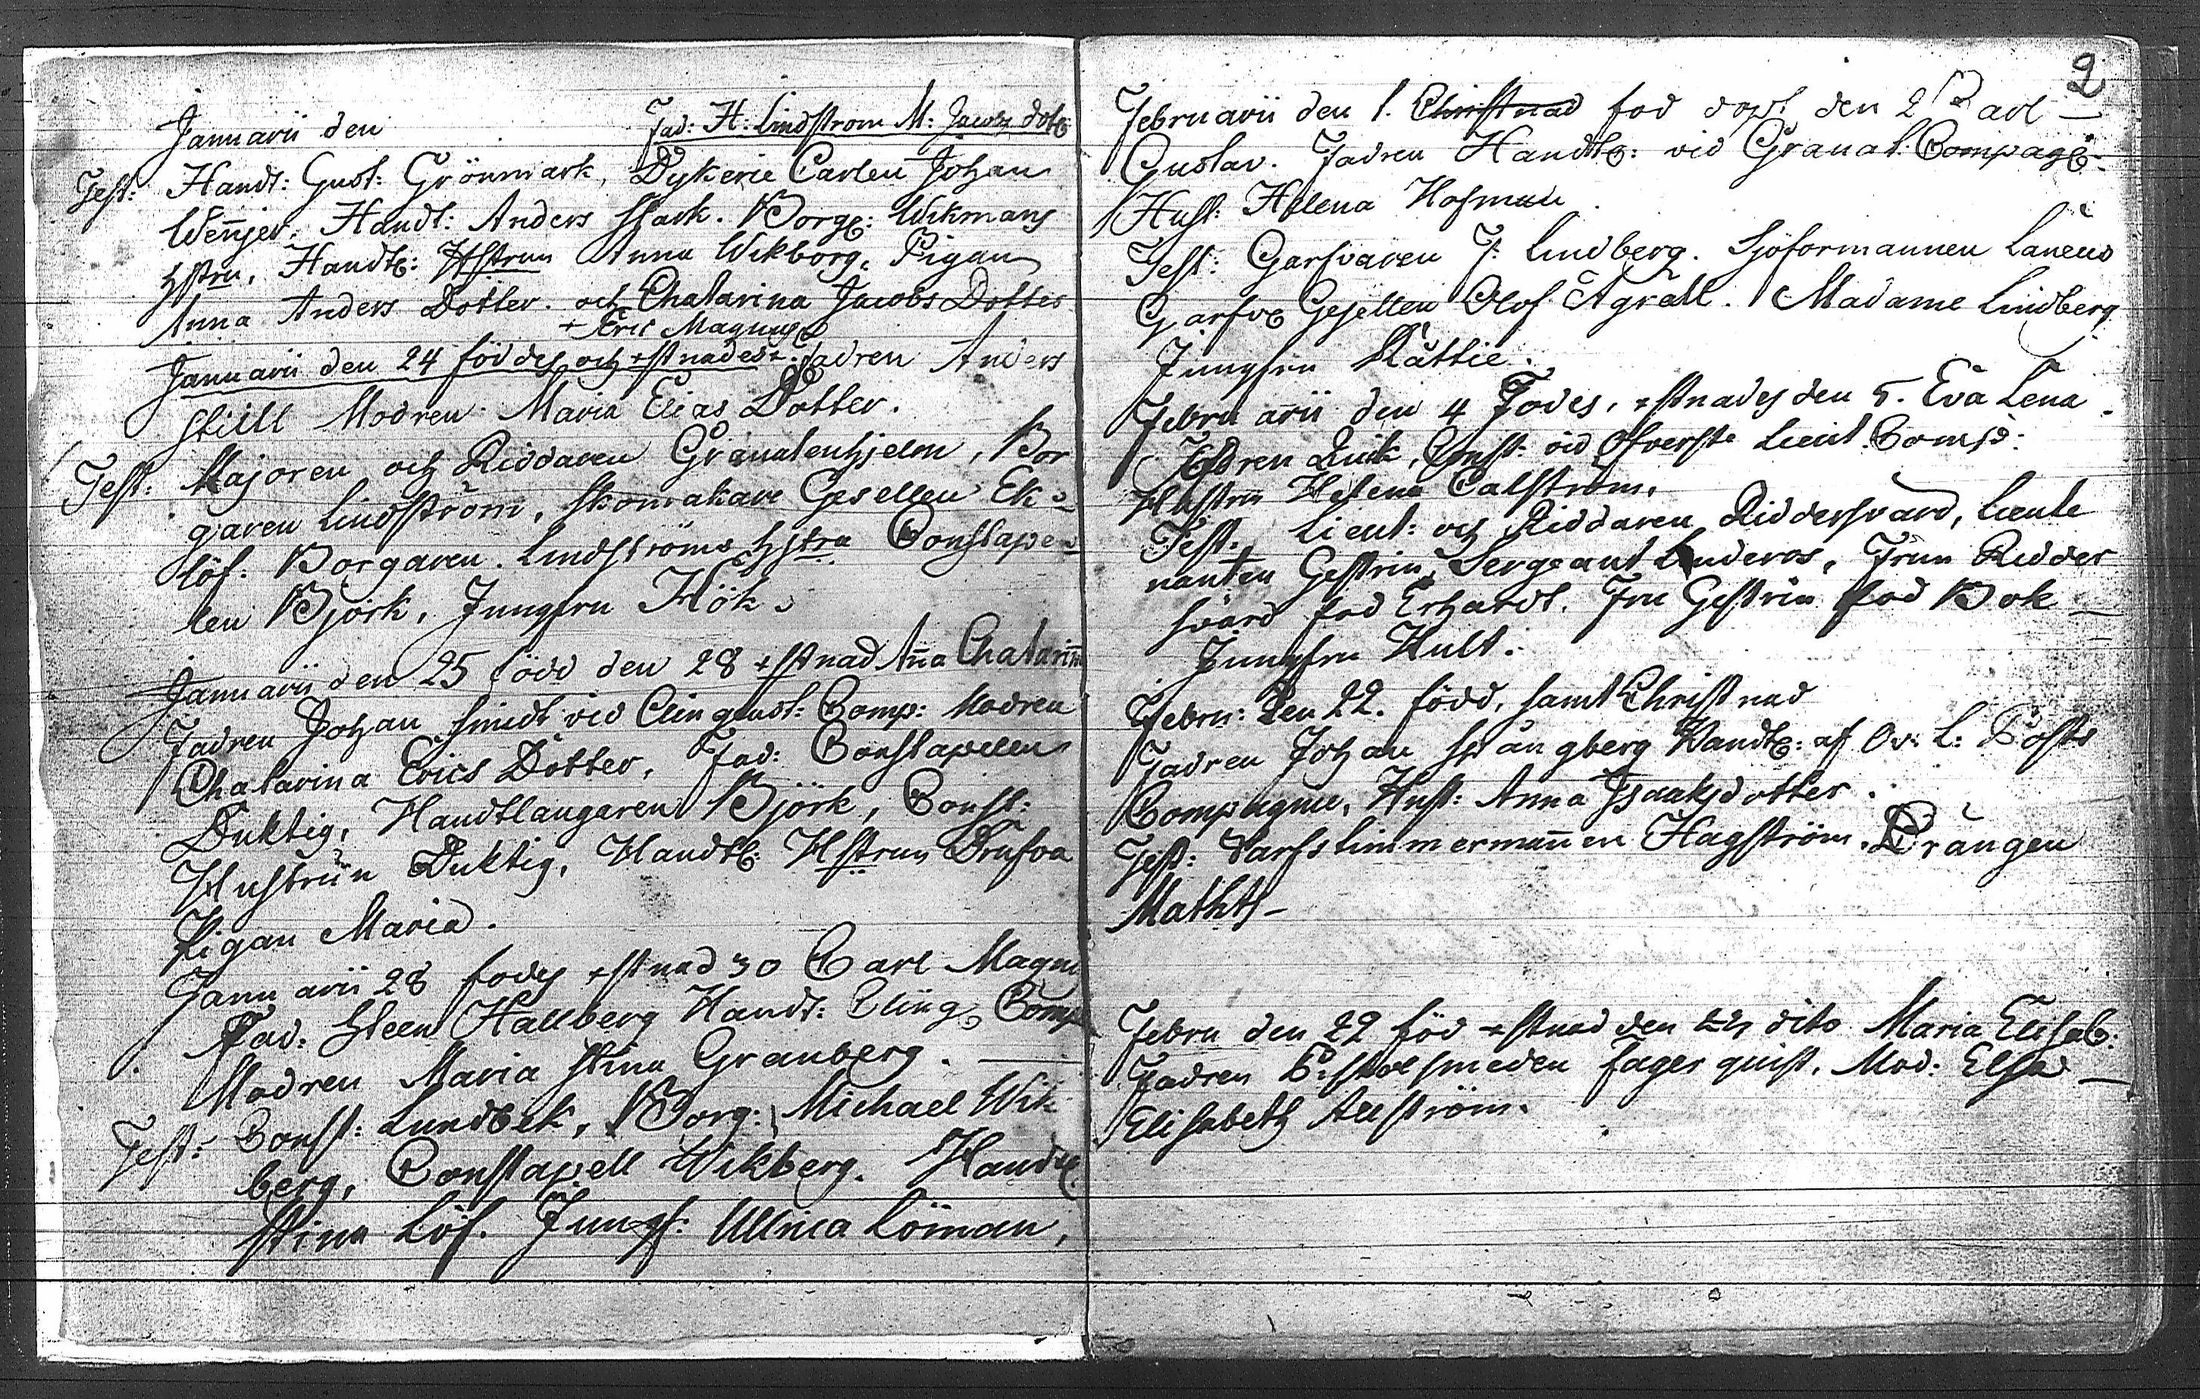 Januarii den Fad: H: Lindstrom M: Jacobs dott:
Test: Handt: Gust: Grönmark, Dykerie Carlen Johan
Wennjer, Handt: Anders Stark. Borg: Wikmans
Hstru, Handtl: Hstrun Anna Wikborg, Pigan
Anna Anders Dotter. och Chatarina Jacobs Dotter
+ Eric Magnus
Januarii den 24 föddes och +stnades +. Fadren Anders
Still Modren Maria Elias Dotter.
Test: Majoren och Riddaren Granatenhjelm, Bor
garen Lindström, Skomakare Gesellen Ek-
löf. Borgaren Lindströms Hstru Constape
len Bjork, Jungfru Hök.
Januarii den 25 född den 28 +stnad Anna Chatarina
Fadren Johan Smidt vid Clingenst: Comp: Modren
Chatarina Erics Dotter, Fad: Constapelen
Duktig, Handtlangaren Björk, Const:
Hustrun Duktig, Handtl: Hstrun Drufva
Pigan Maria.
Januarii 28 fodes +stnad 30 Carl Magnus
Fad: Steen Hallberg Handt: Cling: Comp
Modren Maria Stina Granberg. —
Test: Const: Lundbek, Borg: Michael Wik
berg, Constapell Wikberg. Handtl:
Stina Löf. Jungf: Ullrica Löman,
2
Februarii den 1. Christnad fod dopt den 2 Carl —
Gustav. Fadren Handtl: vid Granat: Compagn:
Hust: Helena Hofman.
Test: Garfvaren J: Lindberg. Sjöformannen Laneus
Garfve Gesellen Olof Agräll. Madame Lindberg
Jungfru Rättie.
Februarii den 4 Fodes, +stnades den 5. Eva Lena.
Fadren Quik, Const: vid Ofverste Lieut: Comp:
Hustrun Helena Calström.
Test: Lieut: och Riddaren Riddersvärd, Lieute
nanten Gestrin, Sergeant Linderos, Frun Ridder
svärd fod Erhardt. Fru Gestrin fod Bok —
Jungfru Hult.
Febru: den 22. född, samt Christnad
Fadren Johan Stångberg Handtl: af Ov: L: Posts
Compagnie, Hust: Anna Isaaksdotter.
Test: Varfstimmermannen Hagström. Drängen
Mathts —
Febru den 22 föd +stnad den dito Maria Elisab:
Fadren smeden Fagerquist. Mod: Elsa —
Elisabeth Allström.